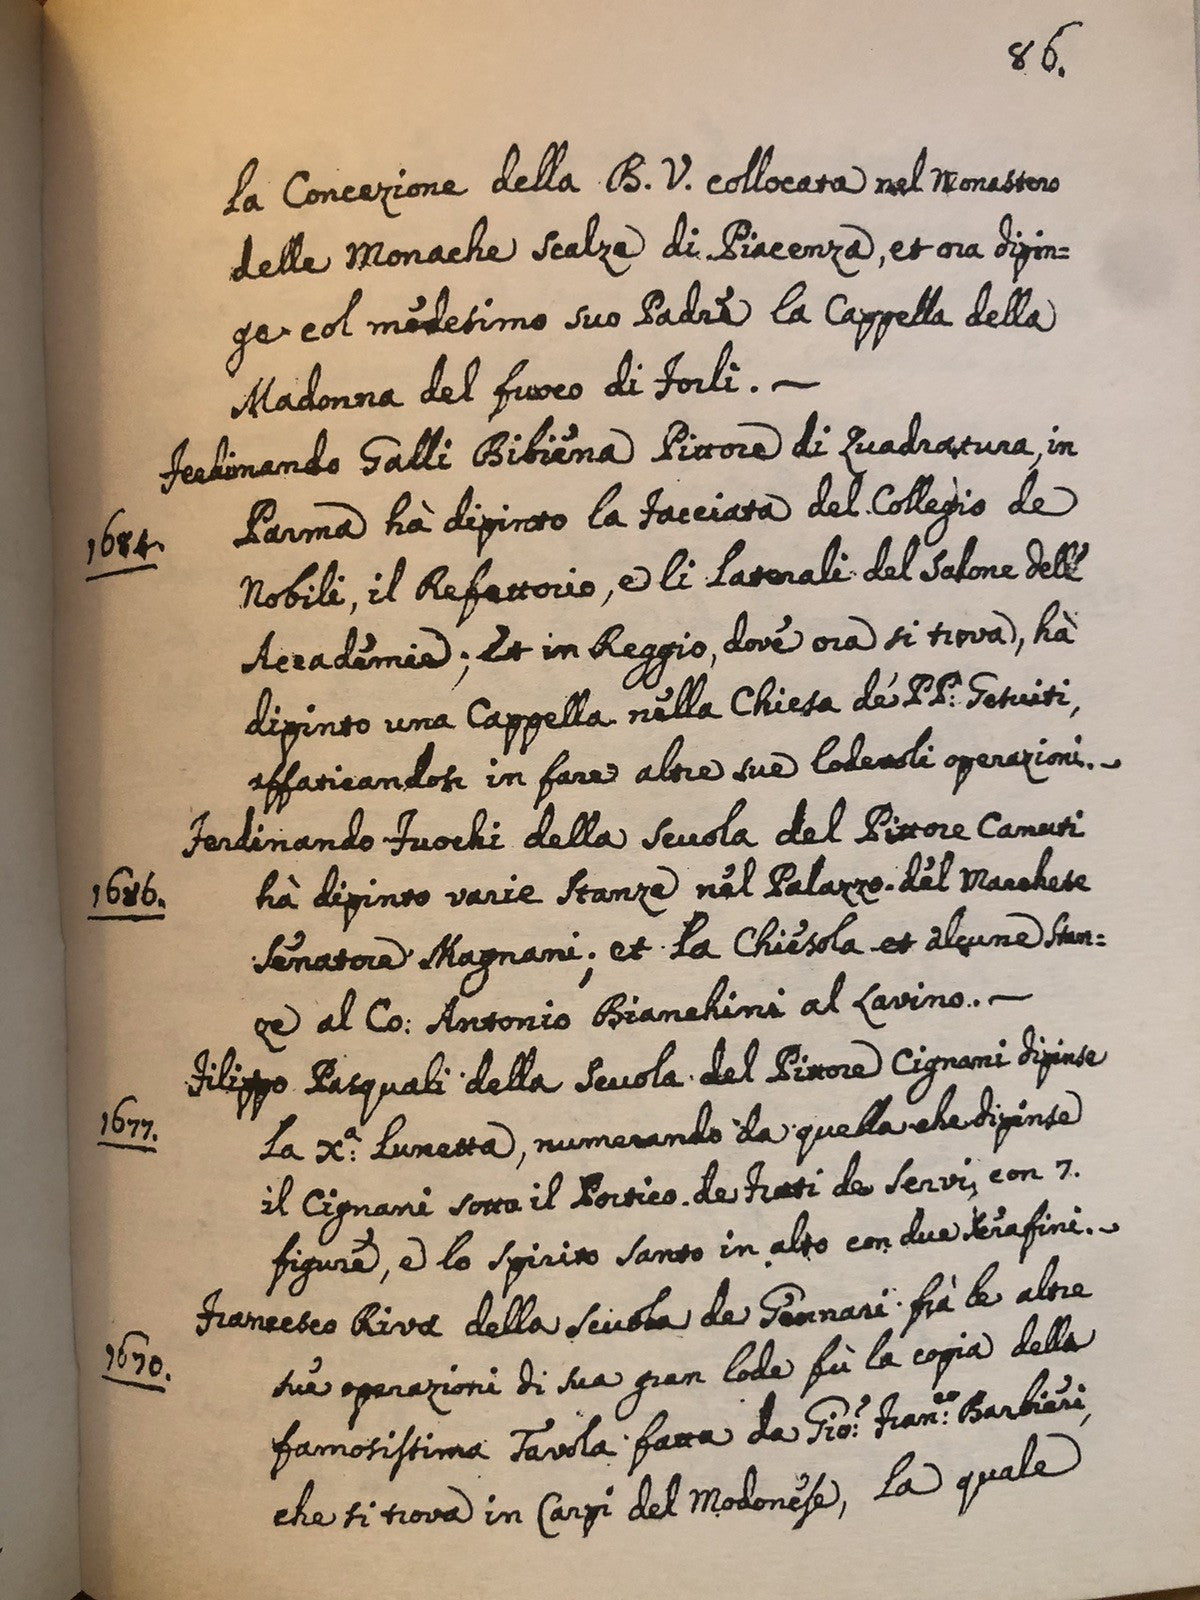 86.
la Concezione della B. V. collocata nel Monastero
delle Monache Scalze di Piacenza, et ora dipin=
ge col medesimo suo Padre la Cappella della
Madonna del fuoco di Forlì. ~
Ferdinando Galli Bibiena Pittore di Quadratura, in
1684. Parma hà dipinto la facciata del Collegio de
Nobili, il Refettorio, e li laterali del Salone dell'
Accademia; Et in Reggio, dove ora si trova, hà
dipinto una Cappella nella Chiesa dé PP: Gesuiti,
affaticandosi in fare altre sue lodevoli operazioni. ~
Ferdinando Fuochi della Scuola del Pittore Canuti
1686. hà dipinto varie Stanze nel Palazzo del Marchese
Senatore Magnani; et la Chiesola et alcune Stan=
ze al Co: Antonio Bianchini al Lavino. ~
Filippo Pasquali della Scuola del Pittore Cignani dipinse
1677. la Xª: Lunetta, numerando da quella che dipinse
il Cignani sotto il Portico de Frati de Servi, con 7.
figure, e lo Spirito Santo in alto con due Serafini. ~
Francesco Riva della Scuola de Gennari frà le altre
1670. sue operazioni di sua gran lode fù la copia della
famosissima Tavola fatta da Gio: Fran:co Barbieri,
che si trova in Carpi del Modonese, la quale